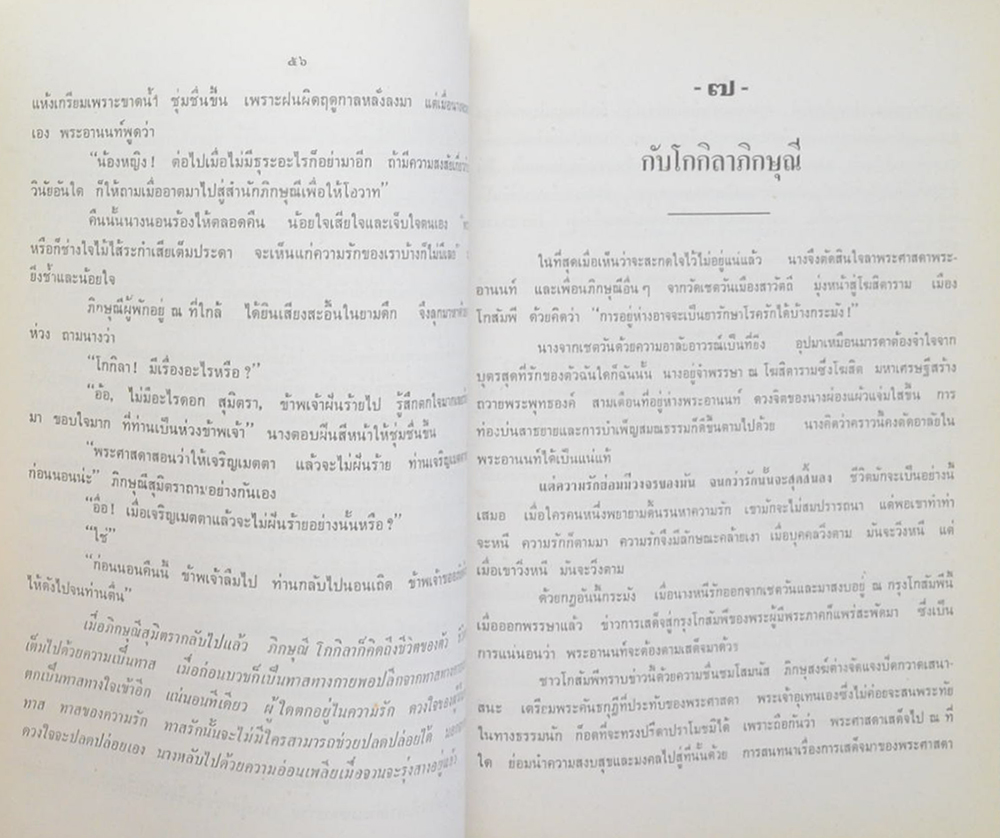 ๕๖
แห้งเกรียมเพราะขาดน้ำ ชุ่มชื่นขึ้น เพราะฝนผิดฤดูกาลหลั่งลงมา แต่เมื่อ
เอง พระอานนท์พูดว่า
“น้องหญิง! ต่อไปเมื่อไม่มีธุระอะไรก็อย่ามาอีก ถ้ามีความสงสัย
วินัยอันใด ก็ให้ถามเมื่ออาตมาไปสู่สำนักภิกษุณีเพื่อให้โอวาท”
คืนนั้นนางนอนร้องไห้ตลอดคืน น้อยใจเสียใจและเจ็บใจตนเอง
หรือก็ช่างใจไม้ไส้ระกำเสียเต็มประดา จะเห็นแก่ความรักของเราบ้างก็ไม่มีเลย
ยิ่งช้ำและน้อยใจ
ภิกษุณีผู้พักอยู่ ณ ที่ใกล้ ได้ยินเสียงสะอื้นในยามดึก จึงลุก
ห่วง ถามนางว่า
“โกกิลา! มีเรื่องอะไรหรือ?”
“อ้อ, ไม่มีอะไรดอก สุมิตรา, ข้าพเจ้าฝันร้ายไป รู้สึกตกใจมาก
มา ขอบใจมาก ที่ท่านเป็นห่วงข้าพเจ้า” นางตอบฝืนสีหน้าให้ชุ่มชื่นขึ้น
“พระศาสดาสอนว่าให้เจริญเมตตา แล้วจะไม่ฝันร้าย ท่านเจริญเมตตา
ก่อนนอนน่ะ” ภิกษุณีสุมิตราถามอย่างกันเอง
“อื่อ! เมื่อเจริญเมตตาแล้วจะไม่ฝันร้ายอย่างนั้นหรือ?”
“ใช่”
“ก่อนนอนคืนนี้ ข้าพเจ้าลืมไป ท่านกลับไปนอนเถิด ข้าพเจ้า
ให้ดังไปจนท่านตื่น”
เมื่อภิกษุณีสุมิตรากลับไปแล้ว ภิกษุณี โกกิลาก็คิดถึงชีวิตของตัว
เต็มไปด้วยความเป็นทาส เมื่อก่อนบวชก็เป็นทาสทางกายพอปลีกจากทาส
ตกเป็นทาสทางใจเข้าอีก แน่นอนทีเดียว ผู้ใดตกอยู่ในความรัก ดวงใจของ
ทาส ทาสของความรัก ทาสรักนั้นจะไม่มีใครสามารถช่วยปลดปล่อยได้
ดวงใจจะปลดปล่อยเอง นางหลับไปด้วยความอ่อนเพลียเมื่อจวนจะรุ่งสางอยู่แล้ว
- ๗ -
กับโกกิลาภิกษุณี
ในที่สุดเมื่อเห็นว่าจะสะกดใจไว้ไม่อยู่แน่แล้ว นางจึงตัดสินใจลาพระศาสดาพระ-
อานนท์ และเพื่อนภิกษุณีอื่น ๆ จากวัดเชตวันเมืองสาวัตถี มุ่งหน้าสู่โฆสิตาราม เมือง
โกสัมพี ด้วยคิดว่า “การอยู่ห่างอาจจะเป็นยารักษาโรครักได้บ้างกระมัง!”
นางจากเชตวันด้วยความอาลัยอาวรณ์เป็นที่ยิ่ง อุปมาเหมือนมารดาต้องจำใจจาก
บุตรสุดที่รักของตัวฉันใดก็ฉันนั้น นางอยู่จำพรรษา ณ โฆสิตารามซึ่งโฆสิต มหาเศรษฐีสร้าง
ถวายพระพุทธองค์ สามเดือนที่อยู่ห่างพระอานนท์ ดวงจิตของนางผ่องแผ้วแจ่มใสขึ้น การ
ท่องบ่นสาธยายและการบำเพ็ญสมณธรรมก็ดีขึ้นตามไปด้วย นางคิดว่าคราวนี้คงตัดอาลัยใน
พระอานนท์ได้เป็นแน่แท้
แต่ความรักย่อมมีวงจรของมัน จนกว่ารักนั้นจะสุดสิ้นลง ชีวิตมักจะเป็นอย่างนี้
เสมอ เมื่อใครคนหนึ่งพยายามดิ้นรนหาความรัก เขามักจะไม่สมปรารถนา แต่พอเขาทำท่า
จะหนี ความรักก็ตามมา ความรักจึงมีลักษณะคล้ายเงา เมื่อบุคคลวิ่งตาม มันจะวิ่งหนี แต่
เมื่อเขาวิ่งหนี มันจะวิ่งตาม
ด้วยกฎอันนี้กระมัง เมื่อนางหนีรักออกจากเชตวันและมาสงบอยู่ ณ กรุงโกสัมพีนี้
เมื่อออกพรรษาแล้ว ข่าวการเสด็จสู่กรุงโกสัมพีของพระผู้มีพระภาคก็แพร่สะพัดมา ซึ่งเป็น
การแน่นอนว่า พระอานนท์จะต้องตามเสด็จมาด้วย
ชาวโกสัมพีทราบข่าวนี้ด้วยความชื่นชมโสมนัส ภิกษุสงฆ์ต่างจัดแจงปัดกวาดเสนา-
สนะ เตรียมพระคันธกุฎีที่ประทับของพระศาสดา พระเจ้าอุเทนเองซึ่งไม่ค่อยจะสนพระทัย
ในทางธรรมนัก ก็อดที่จะทรงปรีดาปราโมชมิได้ เพราะถือกันว่า พระศาสดาเสด็จไป ณ ที่
ใด ย่อมนำความสงบสุขและมงคลไปสู่ที่นั้นด้วย การสนทนาเรื่องการเสด็จมาของพระศาสดา